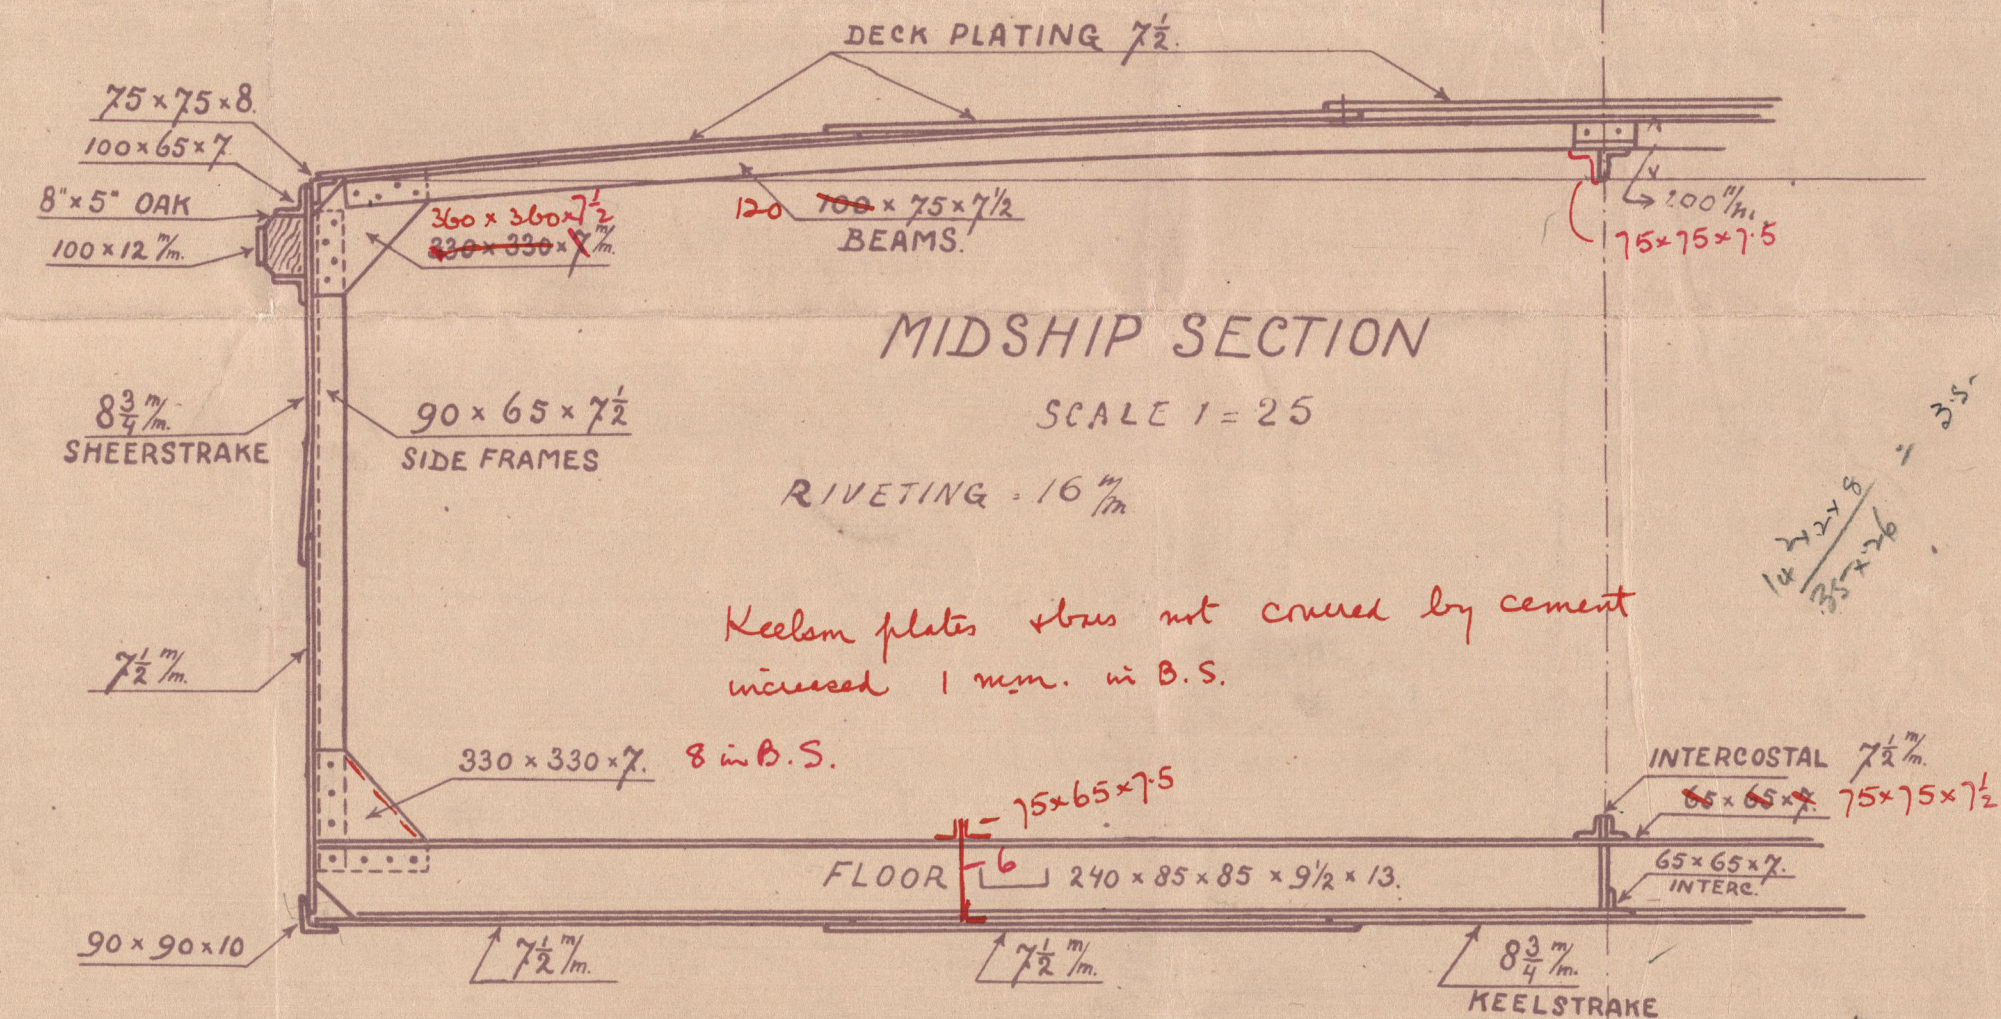 DECK PLATING 7½.
75 × 75 × 8.
100 × 65 × 7
8" × 5" OAK
100 × 12 m/m.
360 × 360 × 7½
330 × 330 × 7 m/m.
120 100 × 75 × 7½
BEAMS.
200 m/m.
75 × 75 × 7.5
MIDSHIP SECTION
SCALE 1 = 25
RIVETING = 16 m/m
8¾ m/m.
SHEERSTRAKE
90 × 65 × 7½
SIDE FRAMES
3.5
14 × 2 × 8
35 × 26
Keelson plates & bars not covered by cement
increased 1 mm. in B.S.
7½ m/m.
330 × 330 × 7. 8 in B.S.
75 × 65 × 7.5
INTERCOSTAL 7½ m/m.
65 × 65 × 7. 75 × 75 × 7½
FLOOR 6 240 × 85 × 85 × 9½ × 13.
65 × 65 × 7.
INTERC.
90 × 90 × 10
7½ m/m.
7½ m/m.
8¾ m/m.
KEELSTRAKE